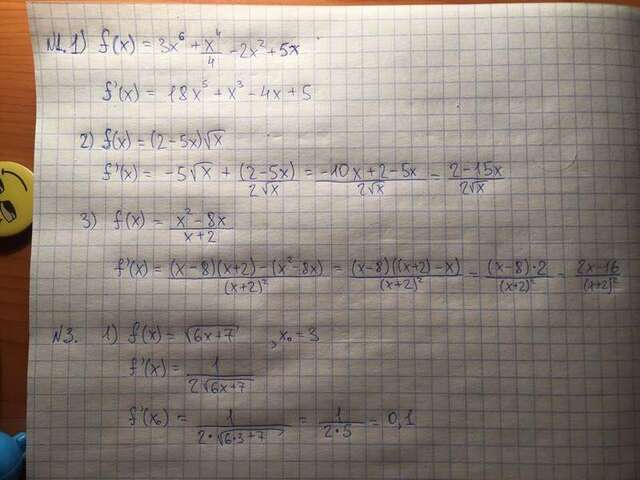 №1. 1) f(x) = 3x⁶ + x⁴/4 - 2x² + 5x
f'(x) = 18x⁵ + x³ - 4x + 5
2) f(x) = (2-5x)√x
f'(x) = -5√x + (2-5x)/2√x = -10x+2-5x/2√x = 2-15x/2√x
3) f(x) = x²-8x/x+2
f'(x) = (x-8)(x+2)-(x²-8x)/(x+2)² = (x-8)((x+2)-x)/(x+2)² = (x-8)·2/(x+2)² = 2x-16/(x+2)²
№3. 1) f(x) = √6x+7 , x₀ = 3
f'(x) = 1/2√6x+7
f'(x₀) = 1/2·√6·3+7 = 1/2·5 = 0,1